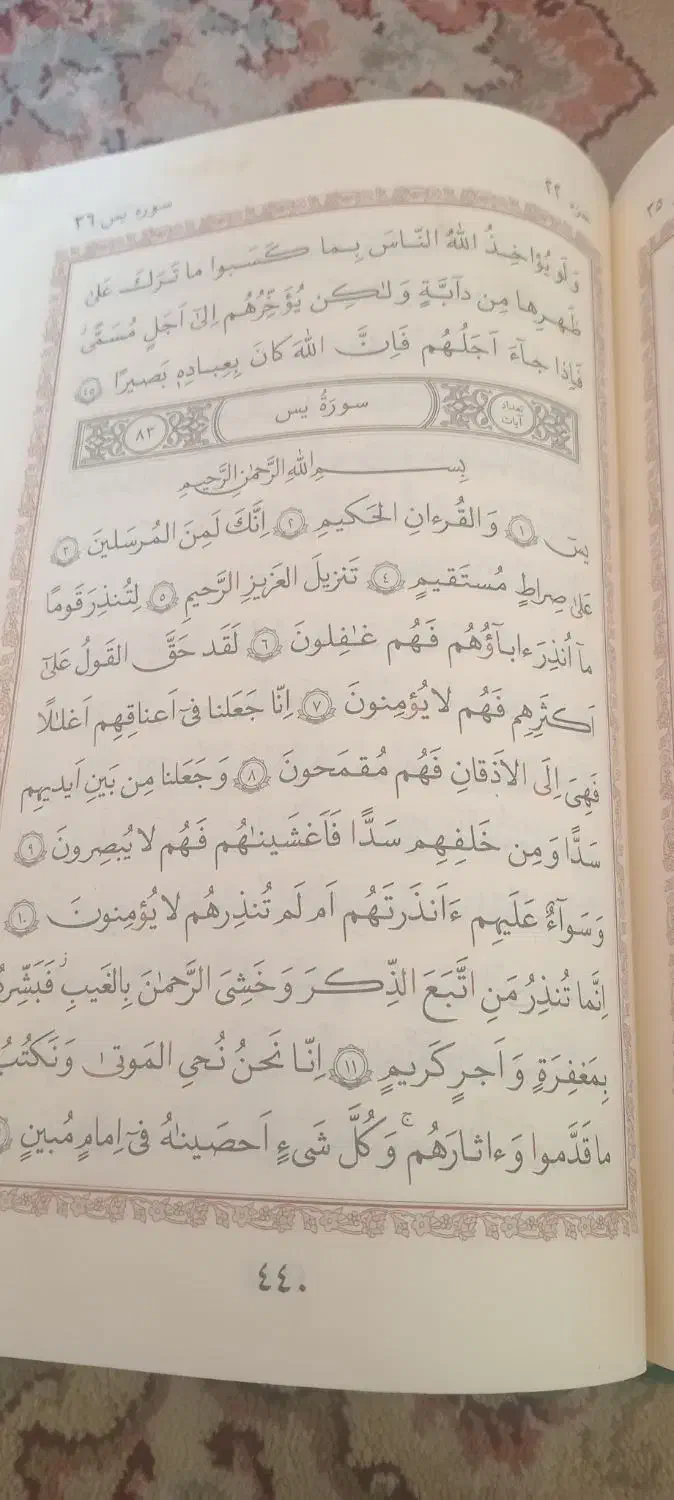 سوره یس ٣٦
جزء ٢٢
وَلَو يُؤاخِذُ اللّٰهُ النّاسَ بِما كَسَبوا ما تَرَكَ عَلىٰ
ظَهرِها مِن دآبَّةٍ وَلٰكِن يُؤَخِّرُهُم اِلىٰٓ اَجَلٍ مُسَمًّىۖ
فَاِذا جآءَ اَجَلُهُم فَاِنَّ اللّٰهَ كانَ بِعِبادِهٖ بَصيرًا ٤٥
تعداد آیات
سورَةُ يس
٨٣
بِسمِ اللّٰهِ الرَّحمٰنِ الرَّحيمِ
يسٓ ١ وَالقُرءانِ الحَكيمِ ٢ اِنَّكَ لَمِنَ المُرسَلينَ ٣
عَلىٰ صِراطٍ مُستَقيمٍ ٤ تَنزيلَ العَزيزِ الرَّحيمِ ٥ لِتُنذِرَ قَومًا
مآ اُنذِرَ ءابآؤُهُم فَهُم غٰفِلونَ ٦ لَقَد حَقَّ القَولُ عَلىٰٓ
اَكثَرِهِم فَهُم لا يُؤمِنونَ ٧ اِنّا جَعَلنا فىٓ اَعناقِهِم اَغلٰلًا
فَهِىَ اِلَى الاَذقانِ فَهُم مُقمَحونَ ٨ وَجَعَلنا مِن بَينِ اَيديهِم
سَدًّا وَمِن خَلفِهِم سَدًّا فَاَغشَينٰهُم فَهُم لا يُبصِرونَ ٩
وَسَوآءٌ عَلَيهِم ءَاَنذَرتَهُم اَم لَم تُنذِرهُم لا يُؤمِنونَ ١٠
اِنَّما تُنذِرُ مَنِ اتَّبَعَ الذِّكرَ وَخَشِىَ الرَّحمٰنَ بِالغَيبِۖ فَبَشِّرهُ
بِمَغفِرَةٍ وَاَجرٍ كَريمٍ ١١ اِنّا نَحنُ نُحىِ المَوتىٰ وَنَكتُبُ
ما قَدَّموا وَءاثارَهُمۚ وَكُلَّ شَىءٍ اَحصَينٰهُ فىٓ اِمامٍ مُبينٍ
٤٤٠